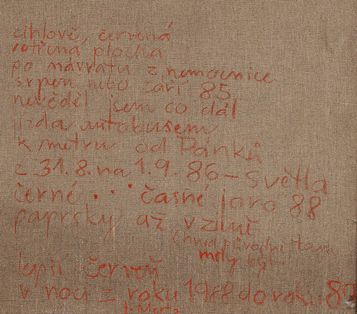 cihlově, červená
votřená plocha
po návratu z nemocnice
srpen nebo září 85
nevěděl jsem co dál
jízda autobusem
k metru od Pánků
z 31.8. na 1.9. 86 – světla
černé ... časné jaro 88
paprsky až v zimě
měly být
lepší červeň
v noci z roku 1988 do roku 89